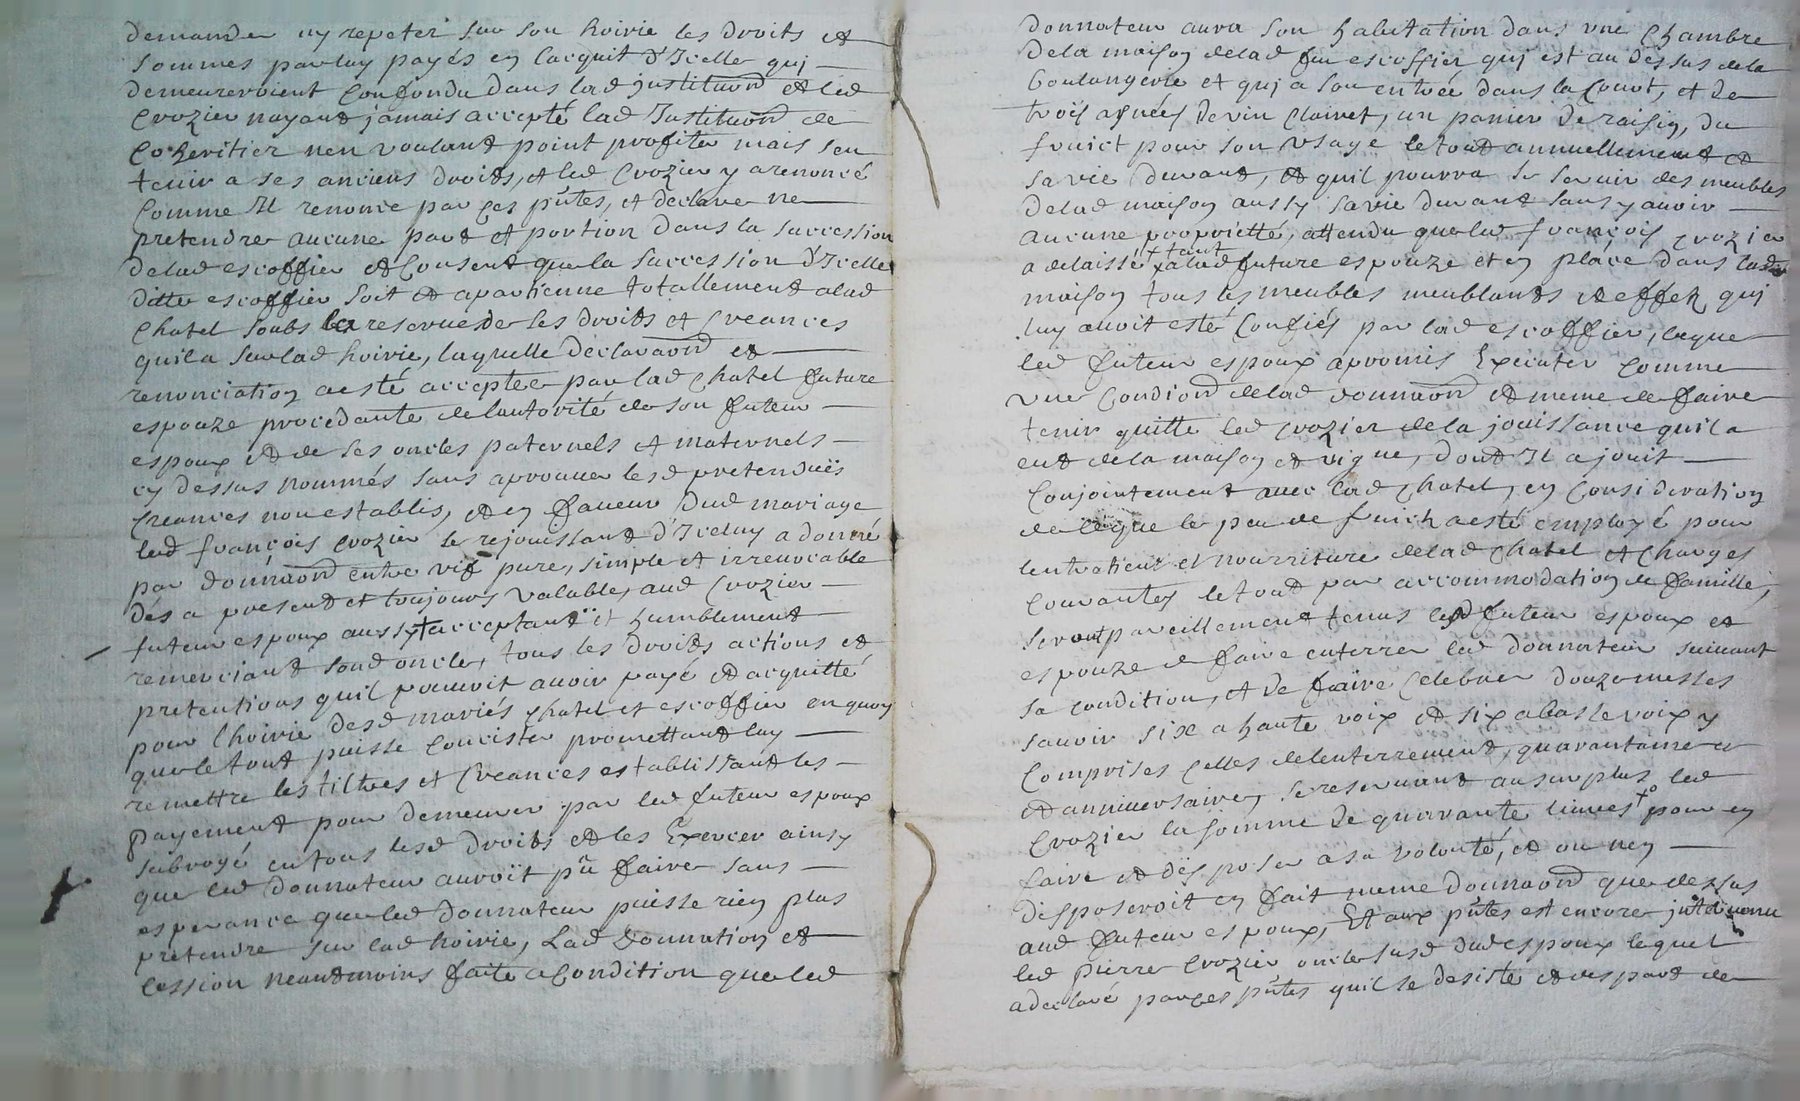 demander ny repeter sur son hoirie les droits et
sommes par luy payés en lacquit d'Icelle qui
demeureroient confondu dans lad justituaōn et led
Crozier nayant jamais accepté lad Justituaōn de
Coheritier nen voulant point profiter mais sen
tenir a ses anciens droits, et led Crozier y a renoncé
Comme Il renonce par ces pn̄tes, et declare ne
pretendre aucune part et portion dans la succession
delad escoffier et Consent que la succession d'Icelle
ditte escoffier soit et apartienne totallement alad
Chatel soubs la reserve de les droits et Creances
quil a sur lad hoirie, laquelle declaraōn et
renonciation a esté acceptée par lad Chatel future
espouze procedante de lautorité de son futeur
espoux et de ses oncles paternels et maternels
cy dessus nommés sans aprouver lesd pretenduës
Creances non establis, et en faveur dud mariage
led françois Crozier le rejouissant d'Iceluy a donné
par donnaōn entre vif pure, simple et irrevocable
dés a present et toujours valable, aud Crozier
futeur espoux aussy + acceptant et humblement
remerciant sond oncle, tous les droits actions et
pretentions quil pouvoit avoir payé et acquitté
pour lhoirie desd mariés Chatel et escoffier en quoy
que le tout puisse Concister promettant luy
remettre les tiltres et Creances establissant les
payement pour demeurer par led futeur espoux
subrogé en tous lesd droits et les Exercer ainsy
que led donnateur auroit pû faire sans
esperance que led donnateur puisse rien plus
pretendre sur lad hoirie, Lad donnation et
Cession neantmoins faite a Condition que led
donnateur aura son habitation dans une Chambre
dela maison delad feu escoffier qui est au dessus dela
boulangerie et qui a son entrée dans la Court, et de
trois asnées de vin Clairet, un panier de raisin, du
fruict pour son usage le tout annuellement et
sa vie durant, et quil pourra se servir des meubles
delad maison aussy sa vie durant sans y avoir
aucune proprietté, attendu que led françois Crozier
a delaissé + tant alad future espouze et en place dans lad
maison tous les meubles meublants et effets qui
luy avoit esté Confiés par lad escoffier, ceque
led futeur espoux a promis Executer Comme
une Condion delad donnaōn et meme de faire
tenir quitte led Crozier dela jouissance quil a
eut dela maison et vigne, dont Il a jouit
Conjointement avec lad Chatel, en Consideration
de ceque le peu de fruich a esté employé pour
lentretient et nourriture delad Chatel et Charges
Courantes le tout par accommodation de famille,
seront pareillement tenus lesd futeur espoux et
espouze de faire enterrer led donnateur suivant
sa condition, et de faire Celebrer douze messes
savoir six a haute voix et six a basse voix y
Comprises Celles delenterrement, quarantaine et
et anniversaire, se reservant au surplus led
Crozier la somme de quarante livres + pour en
faire et disposer a sa volonté, et ou nen
disposeroit en fait meme donnaōn que dessus
aud futeur espoux, Et aux pn̄tes est encore intervenu
led pierre Crozier oncle susd dud espoux lequel
a declaré par ces pn̄tes quil se desiste et despart de